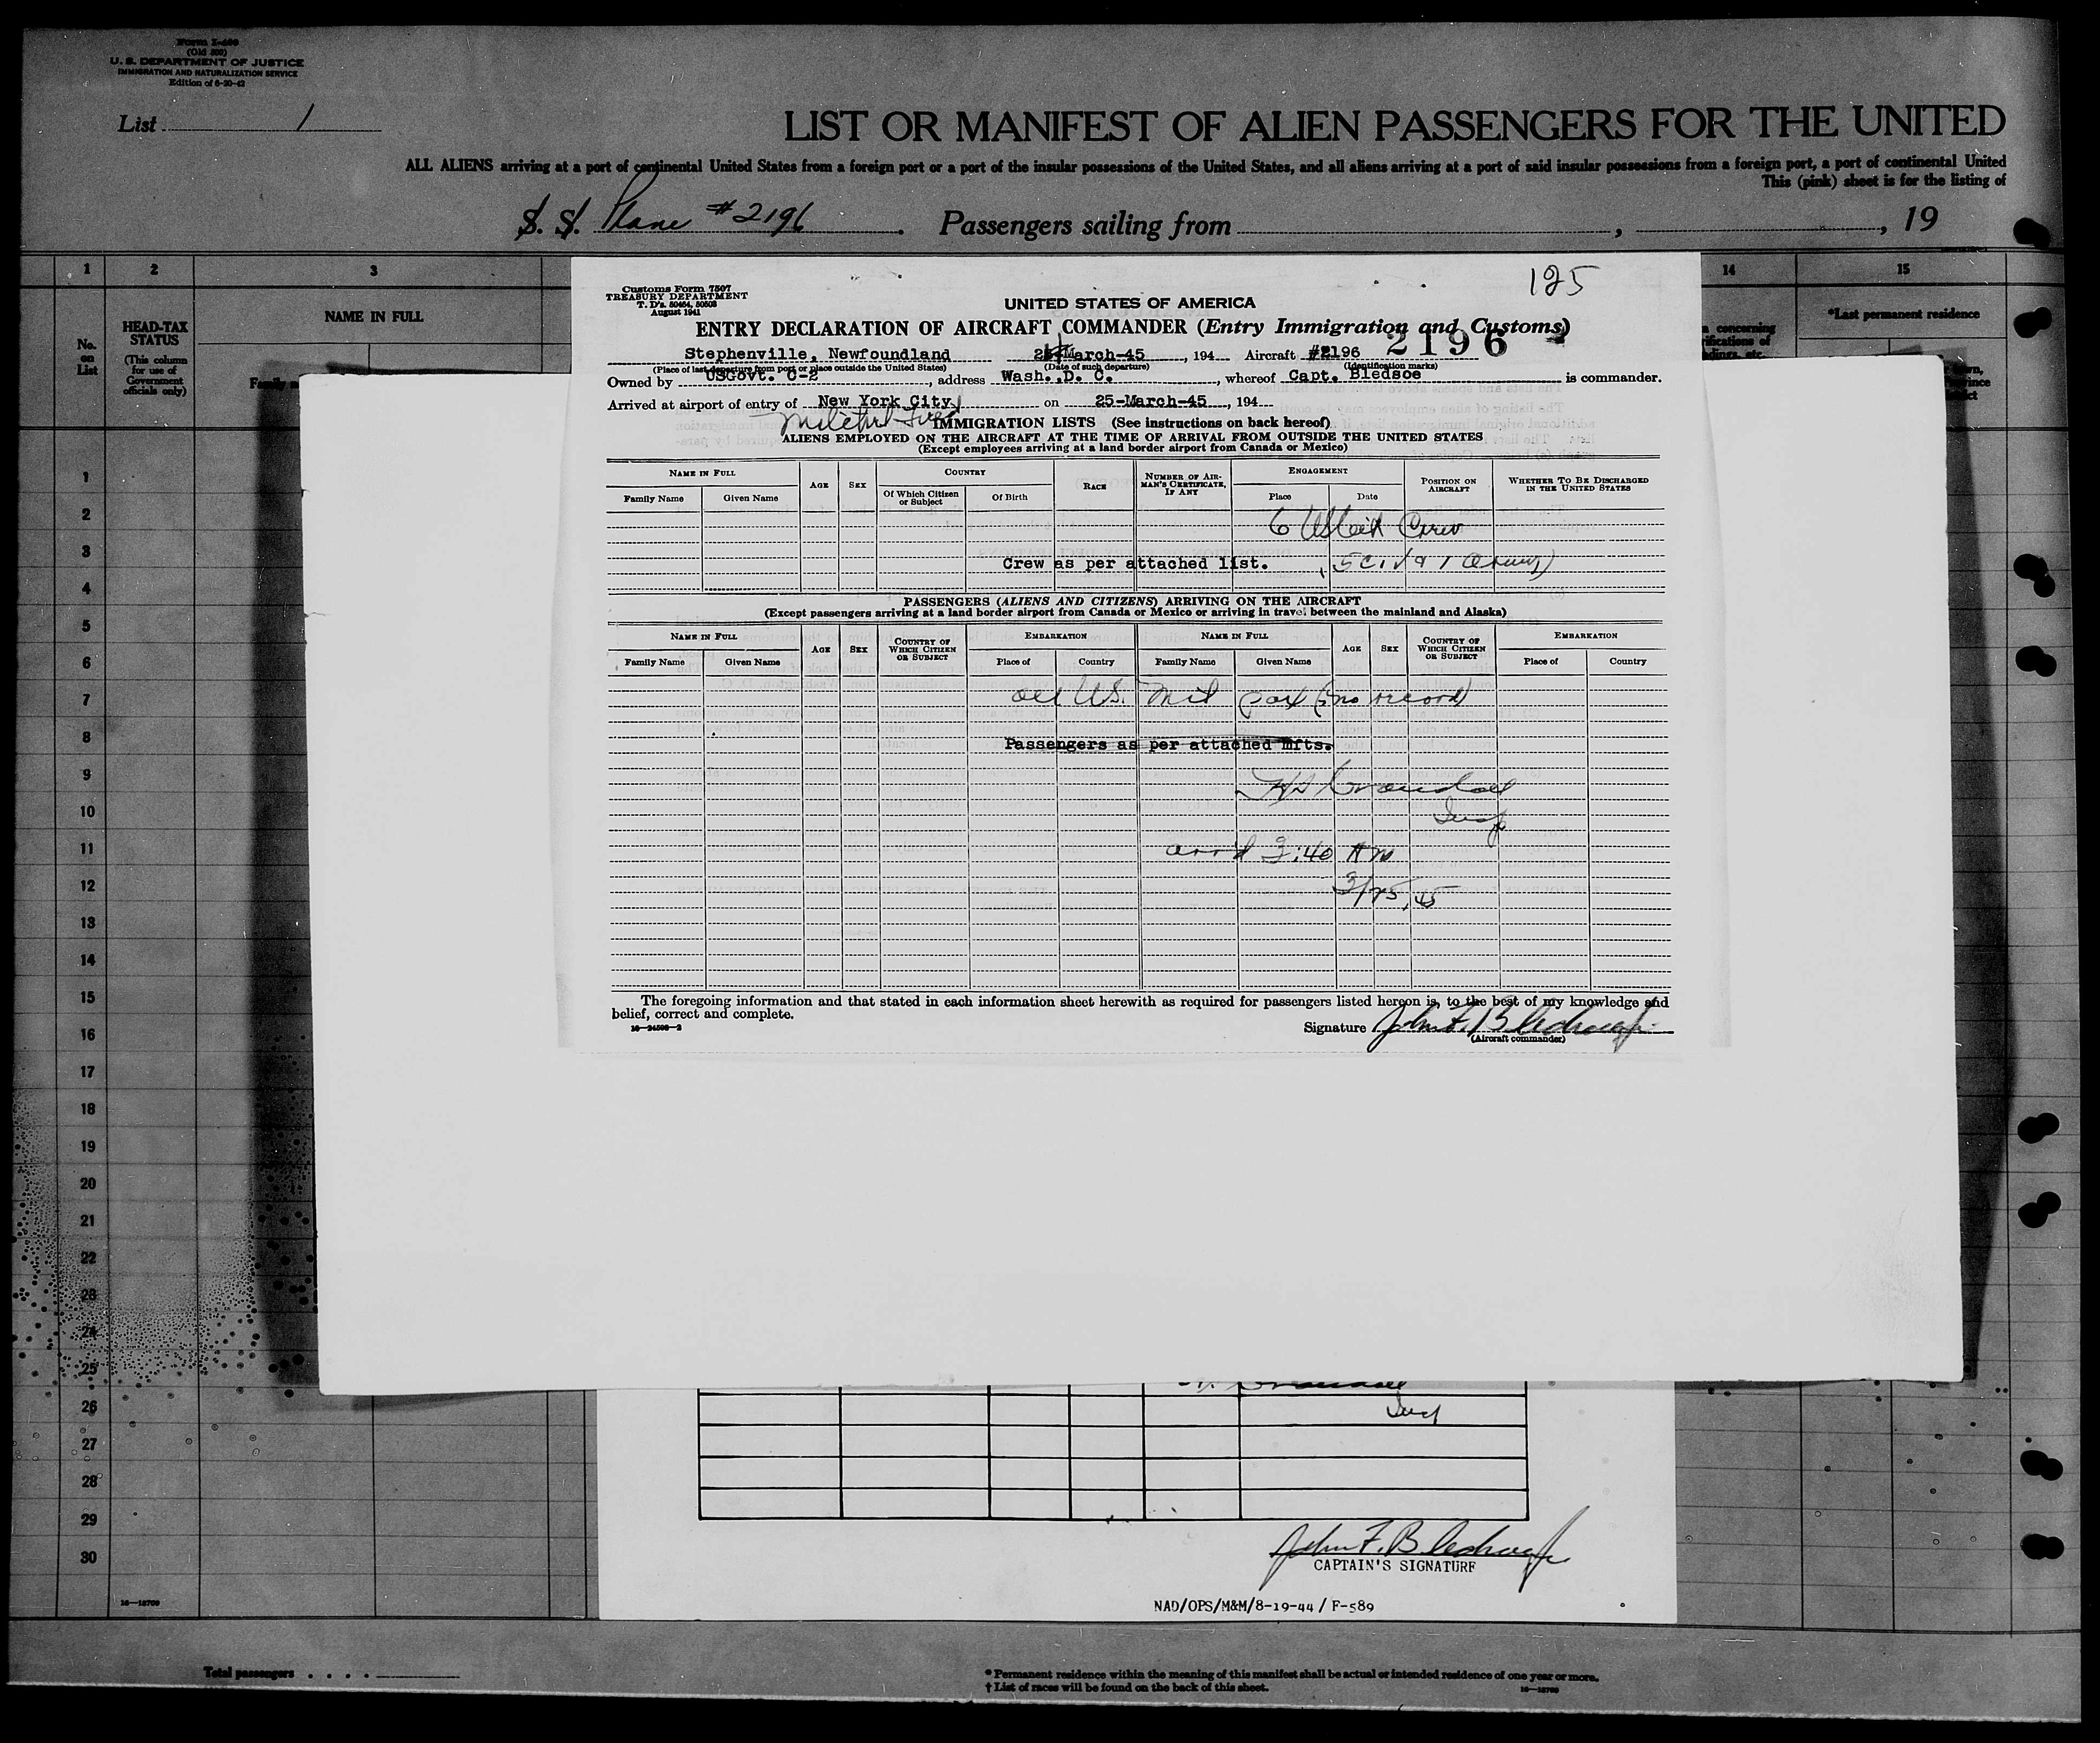 Form I-466
(Old 500)
U. S. DEPARTMENT OF JUSTICE
IMMIGRATION AND NATURALIZATION SERVICE
Edition of 6-20-42
List 1
LIST OR MANIFEST OF ALIEN PASSENGERS FOR THE UNITED
ALL ALIENS arriving at a port of continental United States from a foreign port or a port of the insular possessions of the United States, and all aliens arriving at a port of said insular possessions from a foreign port, a port of continental United
This (pink) sheet is for the listing of
S. S. Plane #2196. Passengers sailing from , , 19
1 2 3 14 15
No. on List
HEAD-TAX STATUS
(This column for use of Government officials only)
NAME IN FULL
*Last permanent residence
125
Customs Form 7507
TREASURY DEPARTMENT
T. D's. 50464, 50503
August 1941
UNITED STATES OF AMERICA
ENTRY DECLARATION OF AIRCRAFT COMMANDER (Entry Immigration and Customs)
2196
Stephenville, Newfoundland March-45, 194 Aircraft #2196
(Place of last departure from port or place outside the United States) (Date of such departure) (Identification marks)
Owned by USGovt. C-2, address Wash., D. C., whereof Capt. Bledsoe is commander.
Arrived at airport of entry of New York City on 25-March-45, 194
IMMIGRATION LISTS (See instructions on back hereof)
ALIENS EMPLOYED ON THE AIRCRAFT AT THE TIME OF ARRIVAL FROM OUTSIDE THE UNITED STATES
(Except employees arriving at a land border airport from Canada or Mexico)
NAME IN FULL AGE SEX COUNTRY RACE NUMBER OF AIRMAN'S CERTIFICATE, IF ANY ENGAGEMENT POSITION ON AIRCRAFT WHETHER TO BE DISCHARGED IN THE UNITED STATES
Family Name Given Name Of Which Citizen or Subject Of Birth Place Date
6 US Crew
Crew as per attached list.
PASSENGERS (ALIENS AND CITIZENS) ARRIVING ON THE AIRCRAFT
(Except passengers arriving at a land border airport from Canada or Mexico or arriving in travel between the mainland and Alaska)
NAME IN FULL AGE SEX COUNTRY OF WHICH CITIZEN OR SUBJECT EMBARKATION NAME IN FULL AGE SEX COUNTRY OF WHICH CITIZEN OR SUBJECT EMBARKATION
Family Name Given Name Place of Country Family Name Given Name Place of Country
all U.S. Mil pax (no record)
Passengers as per attached mfts.
Crandall
Insp
arr'd 3:40 AM
3/25/45
The foregoing information and that stated in each information sheet herewith as required for passengers listed hereon is, to the best of my knowledge and
belief, correct and complete.
16-24500-2
Signature
(Aircraft commander)
1
2
3
4
5
6
7
8
9
10
11
12
13
14
15
16
17
18
19
20
21
22
23
24
25
26
27
28
29
30
CAPTAIN'S SIGNATURE
NAD/OPS/M&M/8-19-44 / F-589
16-18709
Total passengers
* Permanent residence within the meaning of this manifest shall be actual or intended residence of one year or more.
† List of races will be found on the back of this sheet.
16-18709